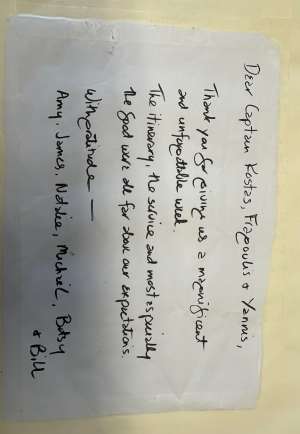 Dear Captain Kostas, Fragoulis & Yannis,
Thank you for giving us a magnificent
and unforgettable week.
The itinerary, the service and most especially
the food were all far above our expectations.
With gratitude —
Amy, James, Natalie, Michael, Betsy
& Bill